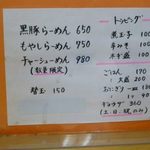 黒豚らーめん 650
もやしらーめん 750
チャーシューめん 980
(数量限定)
替玉 150
トッピング
煮玉子 100
辛みそ 100
ネギ盛 200
ごはん 170
〃 大盛 200
おにぎり一皿 130
ギョウザ 360
(土・日・祝のみ)